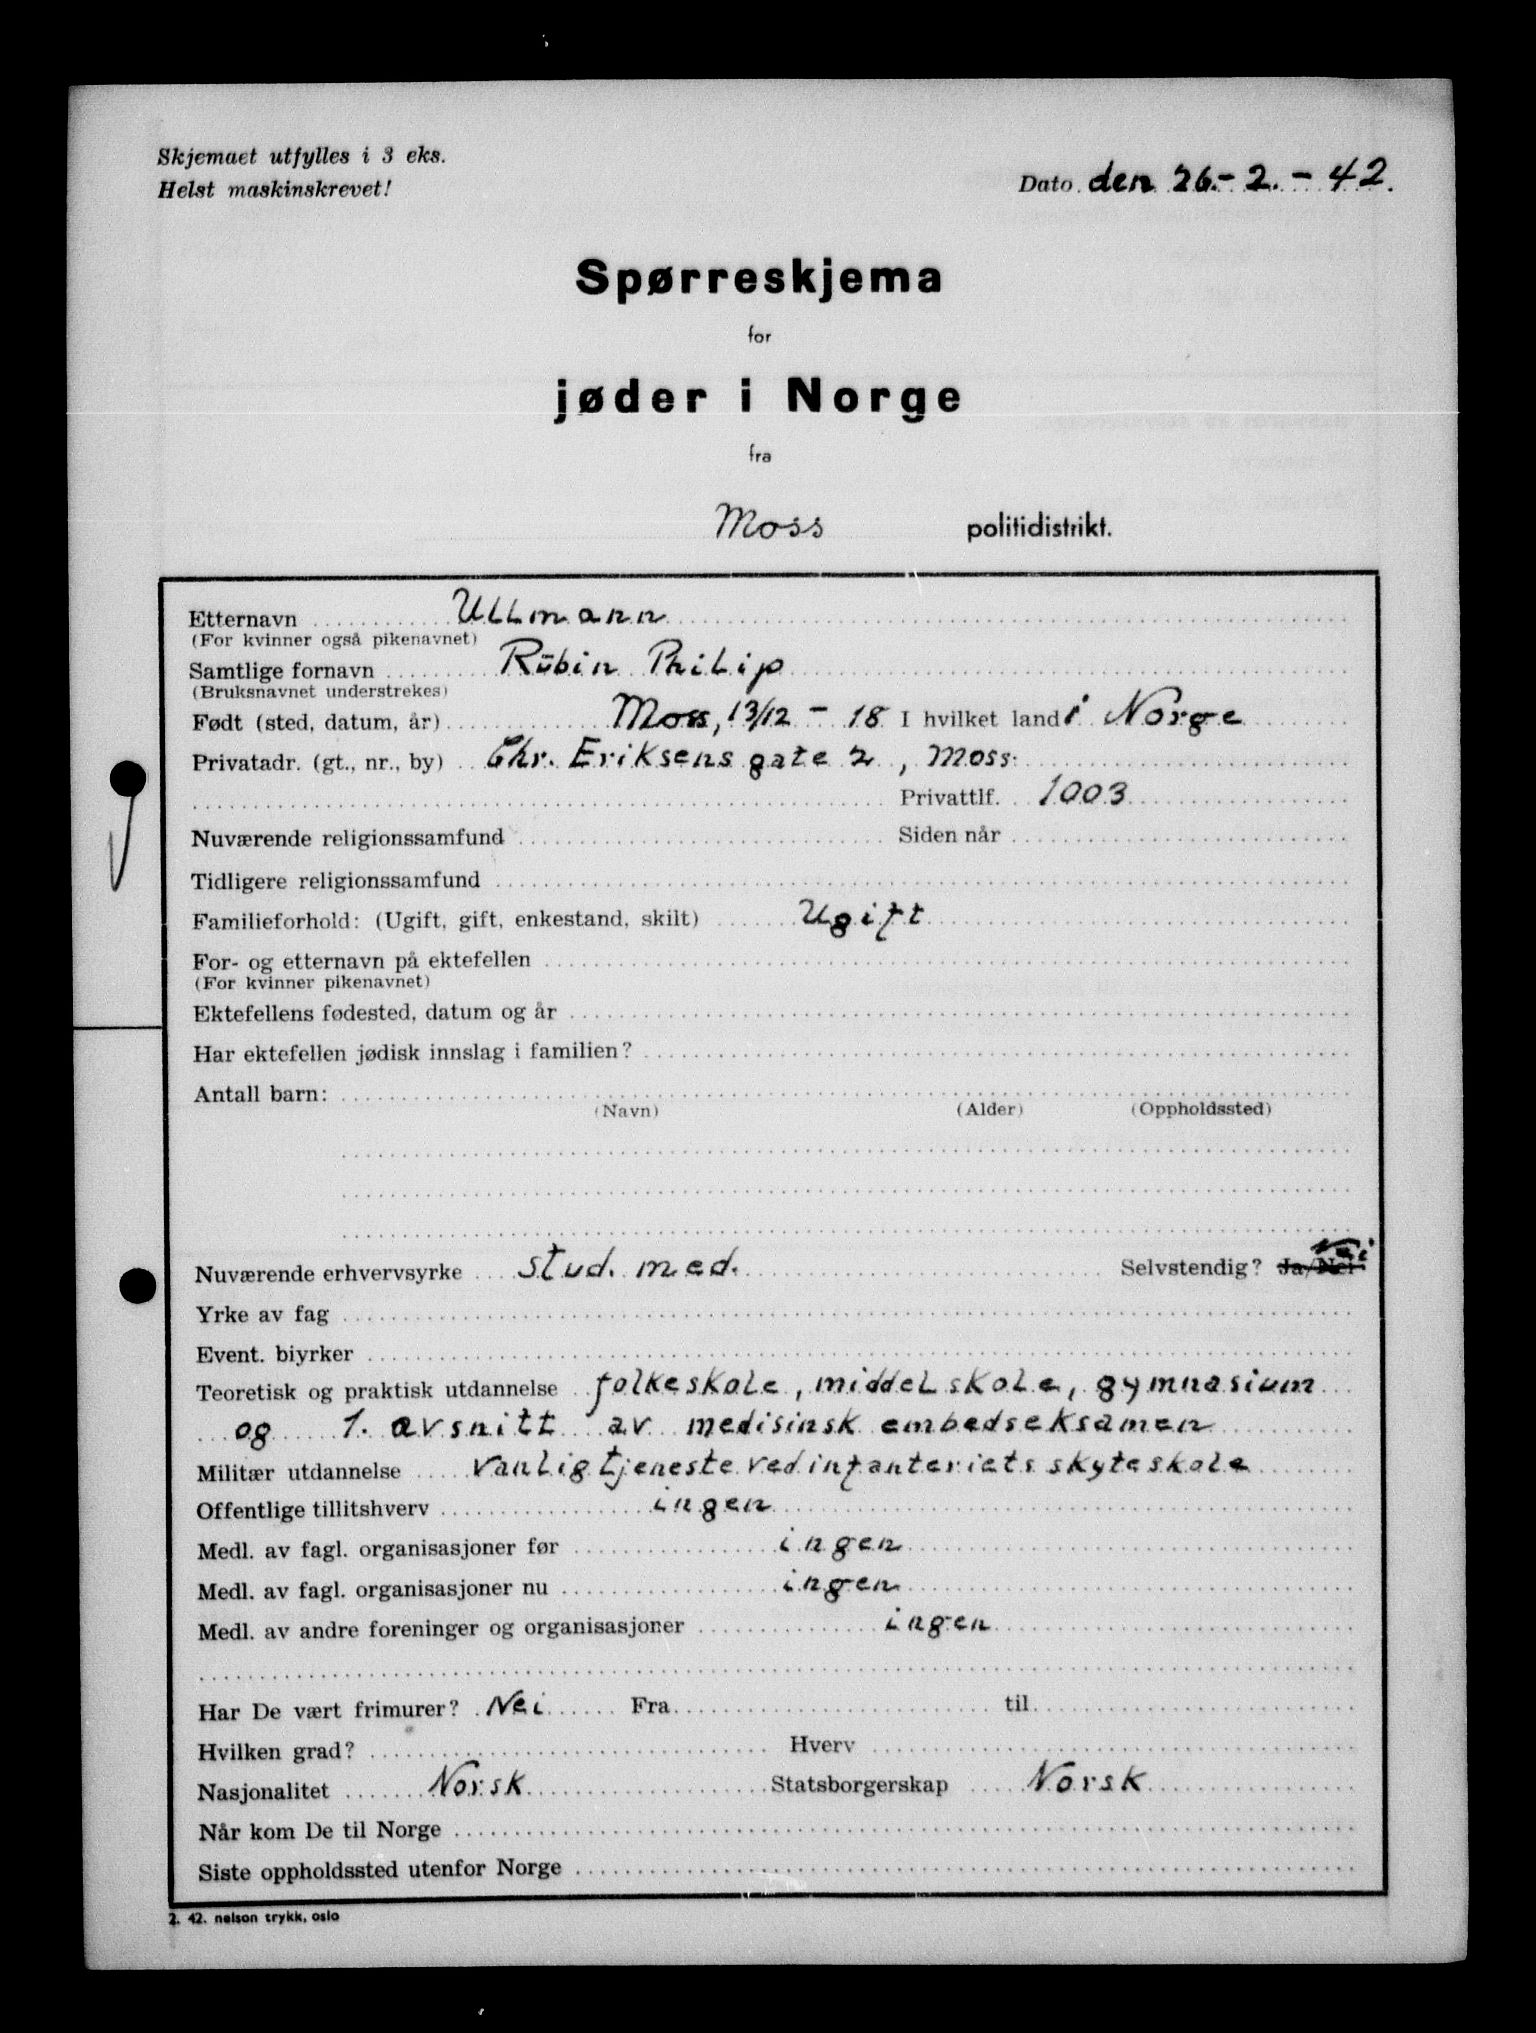 Skjemaet utfylles i 3 eks.
Helst maskinskrevet!
Dato den 26.-2.-42.
Spørreskjema
for
jøder i Norge
fra
Moss politidistrikt.
Etternavn Ullmann
(For kvinner også pikenavnet)
Samtlige fornavn Rubin Philip
(Bruksnavnet understrekes)
Født (sted, datum, år) Moss, 13/12 - 18 I hvilket land i Norge
Privatadr. (gt., nr., by) Chr. Eriksens gate 2, Moss.
Privattlf. 1003
Nuværende religionssamfund Siden når
Tidligere religionssamfund
Familieforhold: (Ugift, gift, enkestand, skilt) Ugift
For- og etternavn på ektefellen
(For kvinner pikenavnet)
Ektefellens fødested, datum og år
Har ektefellen jødisk innslag i familien?
Antall barn:
(Navn) (Alder) (Oppholdssted)
Nuværende erhvervsyrke stud. med. Selvstendig? Ja/Nei Nei
Yrke av fag
Event. biyrker
Teoretisk og praktisk utdannelse folkeskole, middelskole, gymnasium
og 1. avsnitt av medisinsk embedseksamen
Militær utdannelse Vanlig tjeneste ved infanteriets skyteskole
Offentlige tillitshverv ingen
Medl. av fagl. organisasjoner før ingen
Medl. av fagl. organisasjoner nu ingen
Medl. av andre foreninger og organisasjoner ingen
Har De vært frimurer? Nei Fra til
Hvilken grad? Hverv
Nasjonalitet Norsk Statsborgerskap Norsk
Når kom De til Norge
Siste oppholdssted utenfor Norge
2. 42. nelson trykk, oslo